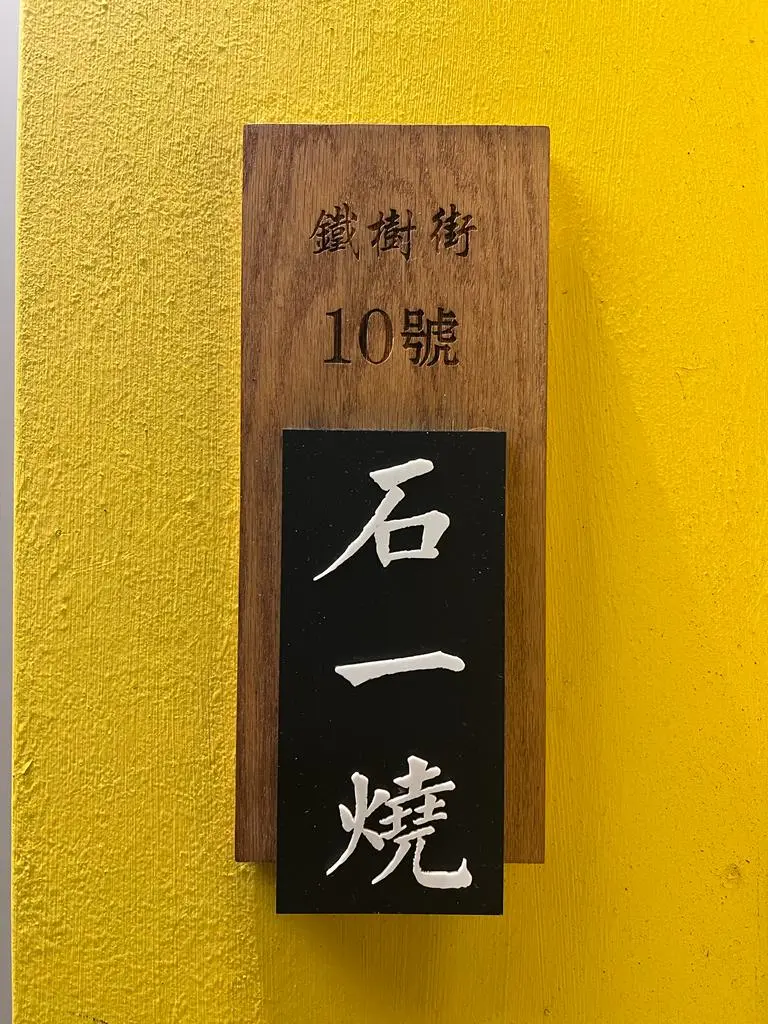 鐵樹街
10號
石一燒